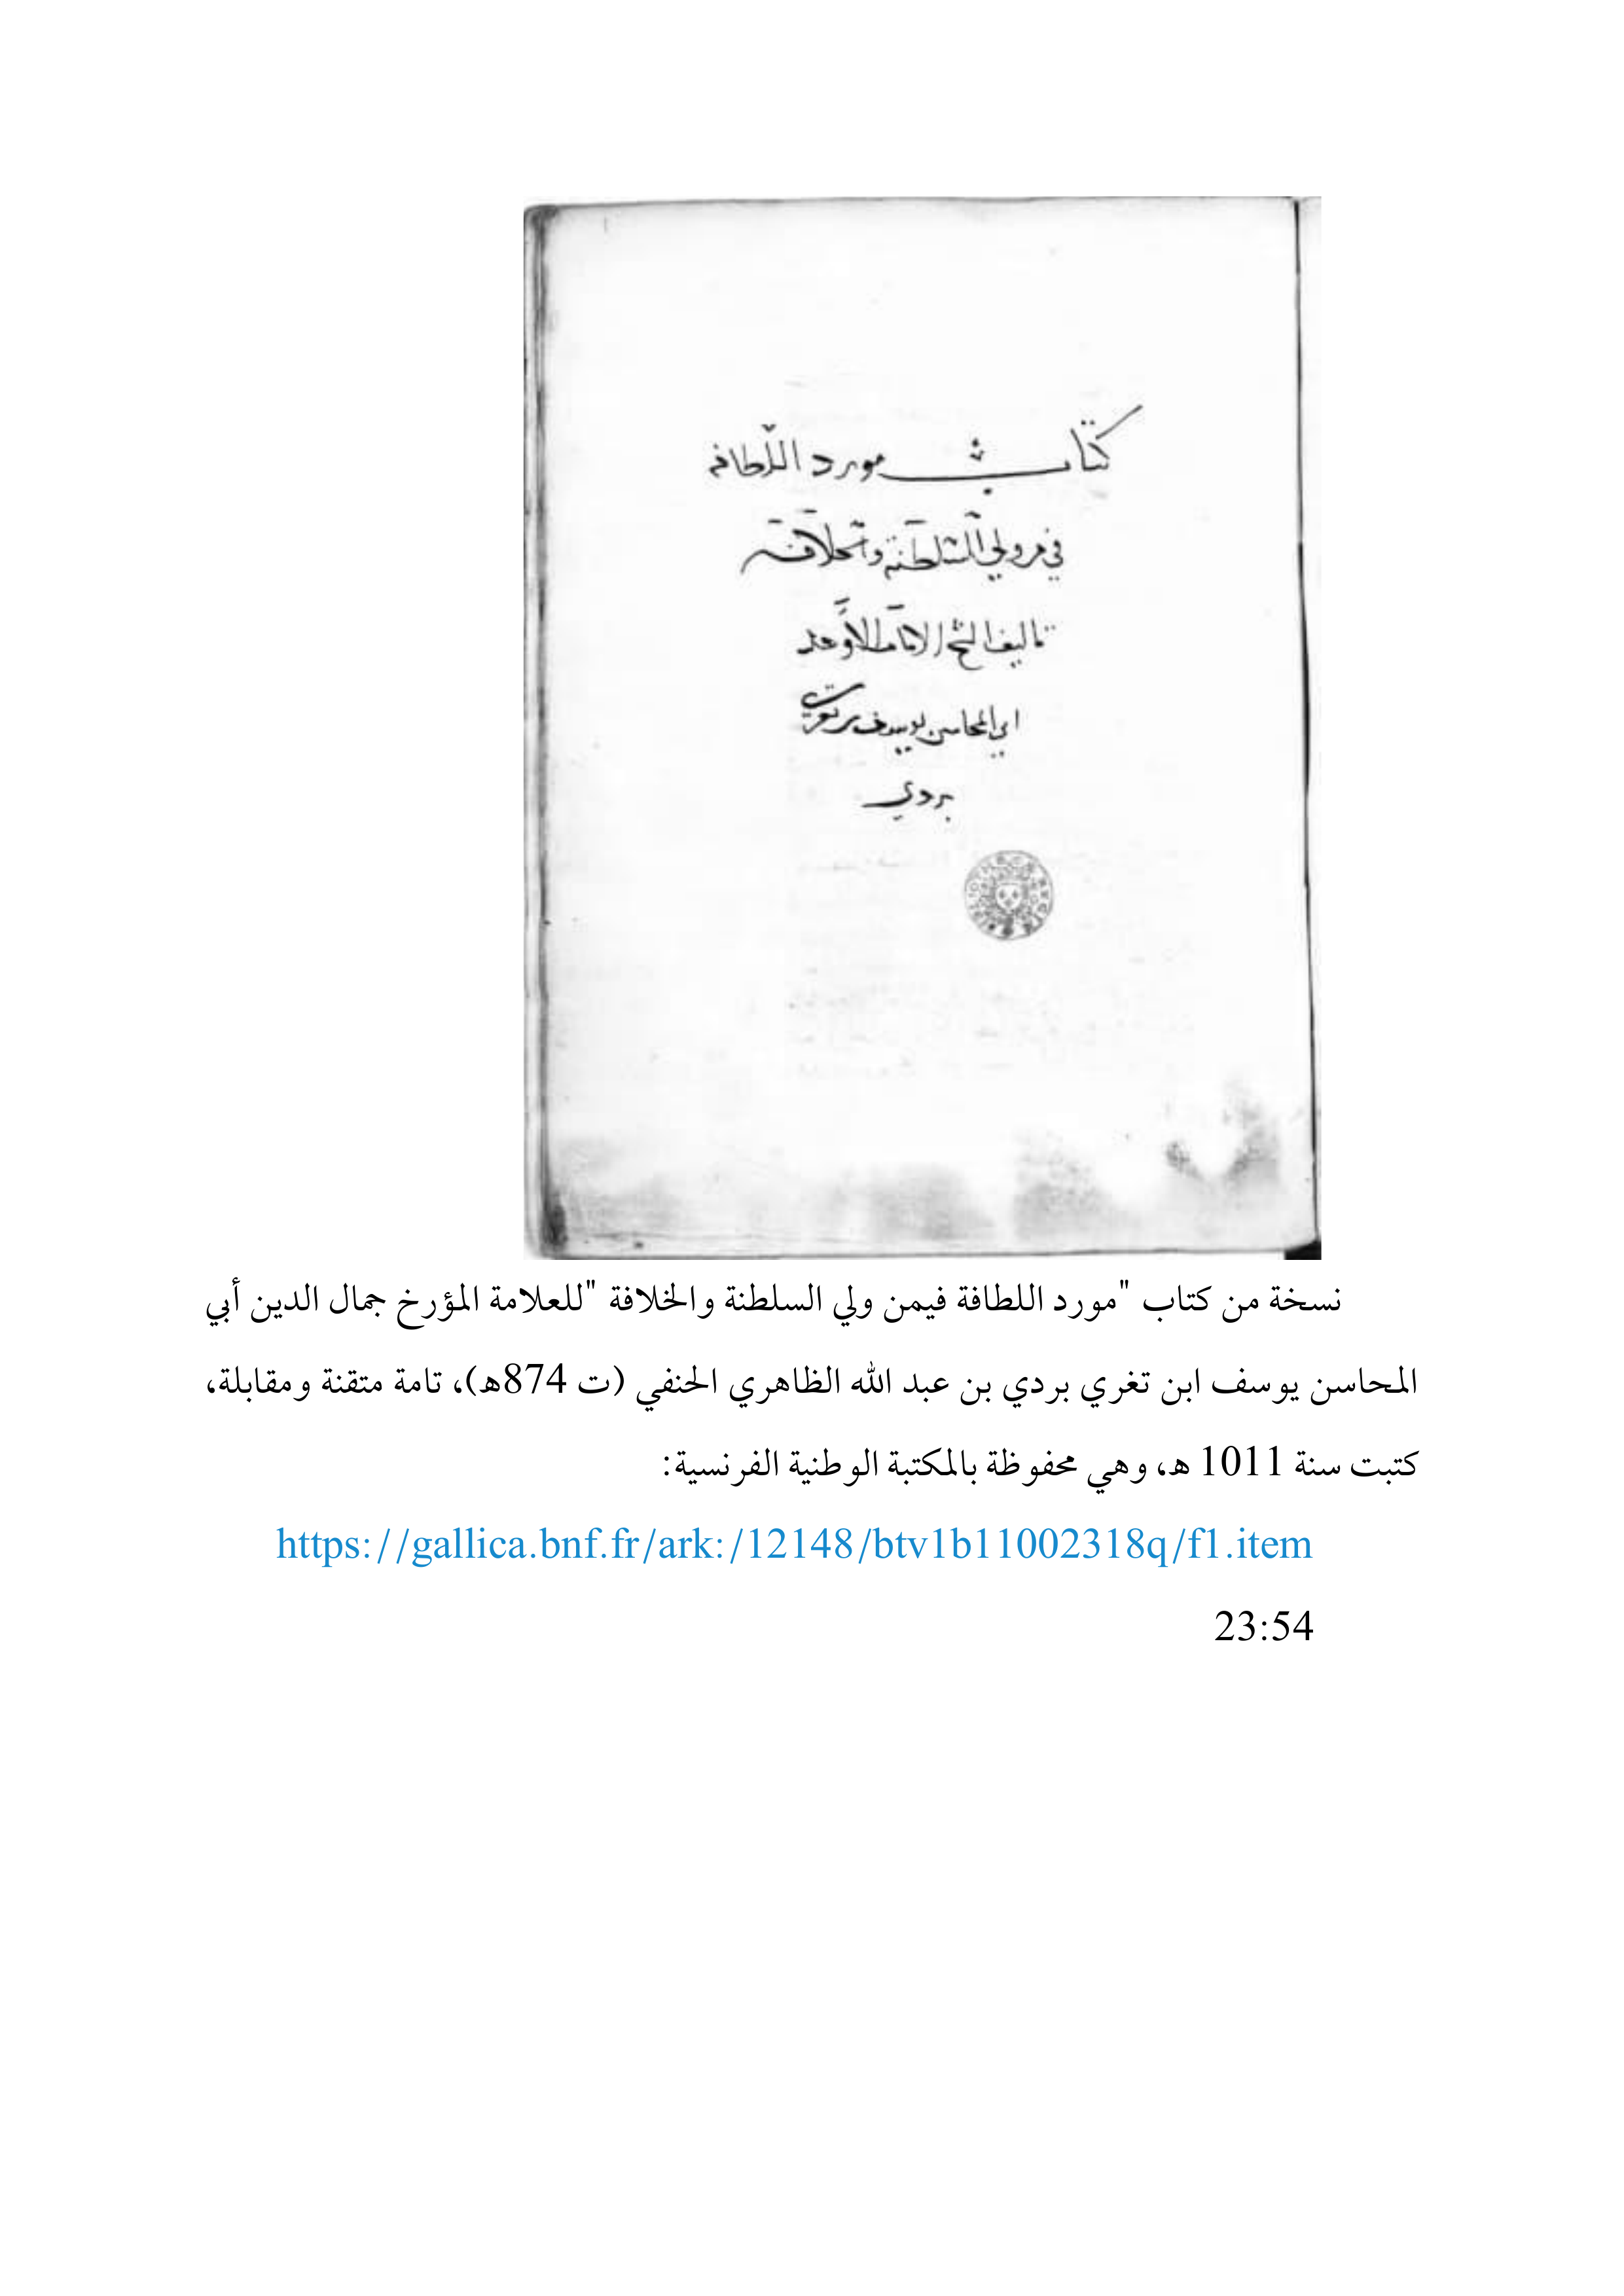 كتاب مورد اللطافه
في من ولي السلطنة والخلافة
تاليف الشيخ الامام الأوحد
ابي المحاسن يوسف بن تغري
بردي
نسخة من كتاب "مورد اللطافة فيمن ولي السلطنة والخلافة "للعلامة المؤرخ جمال الدين أبي
المحاسن يوسف ابن تغري بردي بن عبد الله الظاهري الحنفي (ت 874ه)، تامة متقنة ومقابلة،
كتبت سنة 1011 ه، وهي محفوظة بالمكتبة الوطنية الفرنسية:
https://gallica.bnf.fr/ark:/12148/btv1b11002318q/f1.item
23:54